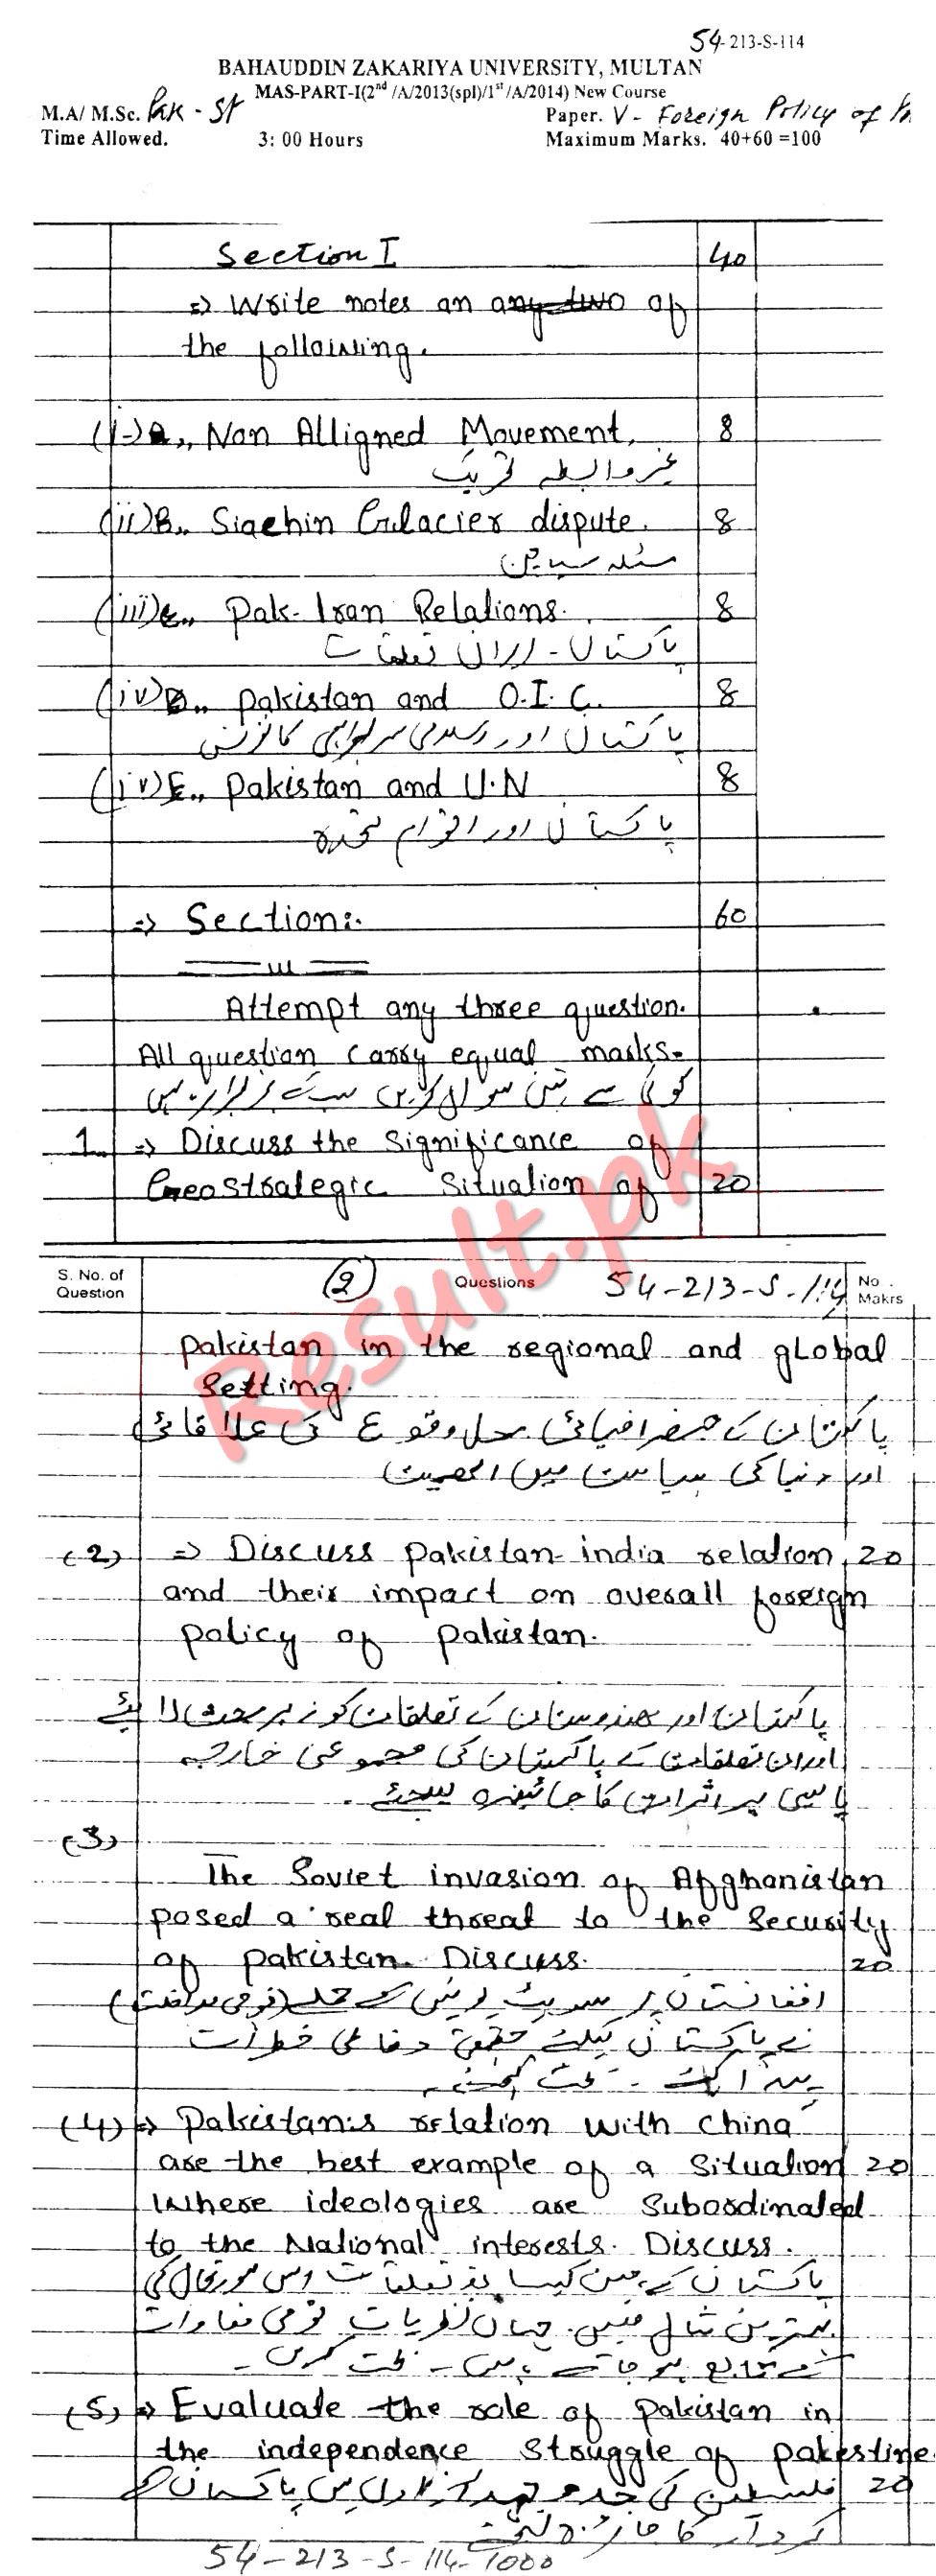 54-213-S-114
BAHAUDDIN ZAKARIYA UNIVERSITY, MULTAN
MAS-PART-I(2nd /A/2013(spl)/1st/A/2014) New Course
M.A/ M.Sc. Pak - St Paper. V - Foreign Policy of
Time Allowed. 3: 00 Hours Maximum Marks. 40+60 =100
Section I 40
=> Write notes on any two of
the following.
(i-) A,, Non Alligned Movement. 8
غیر وابستہ تحریک
(ii) B,, Siachin Gulacier dispute. 8
مسئلہ سیاچن
(iii) C,, Pak-Iran Relations. 8
پاکستان - ایران تعلقات
(iv) D,, Pakistan and O.I.C. 8
پاکستان اور اسلامی سربراہی کانفرنس
(iv) E,, Pakistan and U.N 8
پاکستان اور اقوام متحدہ
=> Section:. 60
Attempt any three question.
All question carry equal marks.
کوئی سے تین سوال کریں سب کے نمبر برابر ہیں
1. => Discuss the significance of
Geostrategic Situation of 20
S. No. of Question (2) Questions 54-213-S-114 No. Makrs
Pakistan in the regional and global
Setting.
پاکستان کے جغرافیائی محل وقوع کی علاقائی
اور دنیا کی سیاست میں اہمیت
(2) => Discuss Pakistan-india relation, 20
and their impact on overall foreign
policy of pakistan.
پاکستان اور ہندوستان کے تعلقات کو زیر بحث لائیے
اور ان تعلقات کے پاکستان کی مجموعی خارجہ
پالیسی پر اثرات کا جائیزہ لیجئے .
(3)
The Soviet invasion of Afghanistan
posed a real threat to the security
of pakistan. Discuss. 20
افغانستان پر سوویت یونین کے حملے (فوجی مداخلت)
نے پاکستان کیلئے حقیقی دفاعی خطرات
پیدا کئے - بحث کیجئے -
(4) => Pakistan's relation with China
are the best example of a situation 20
Where ideologies are Subordinated
to the National interests. Discuss.
پاکستان کے چین کیساتھ تعلقات اس صورتحال کی
بہترین مثال ہیں. جہاں نظریات قومی مفادات
کے تابع ہو جاتے ہیں - بحث کریں -
(5) => Evaluate the role of pakistan in
the independence struggle of palestine
فلسطین کی جدوجہد آزادی میں پاکستان کے 20
کردار کا جائزہ لیجئے
54-213-S-114-1000
Result.pk